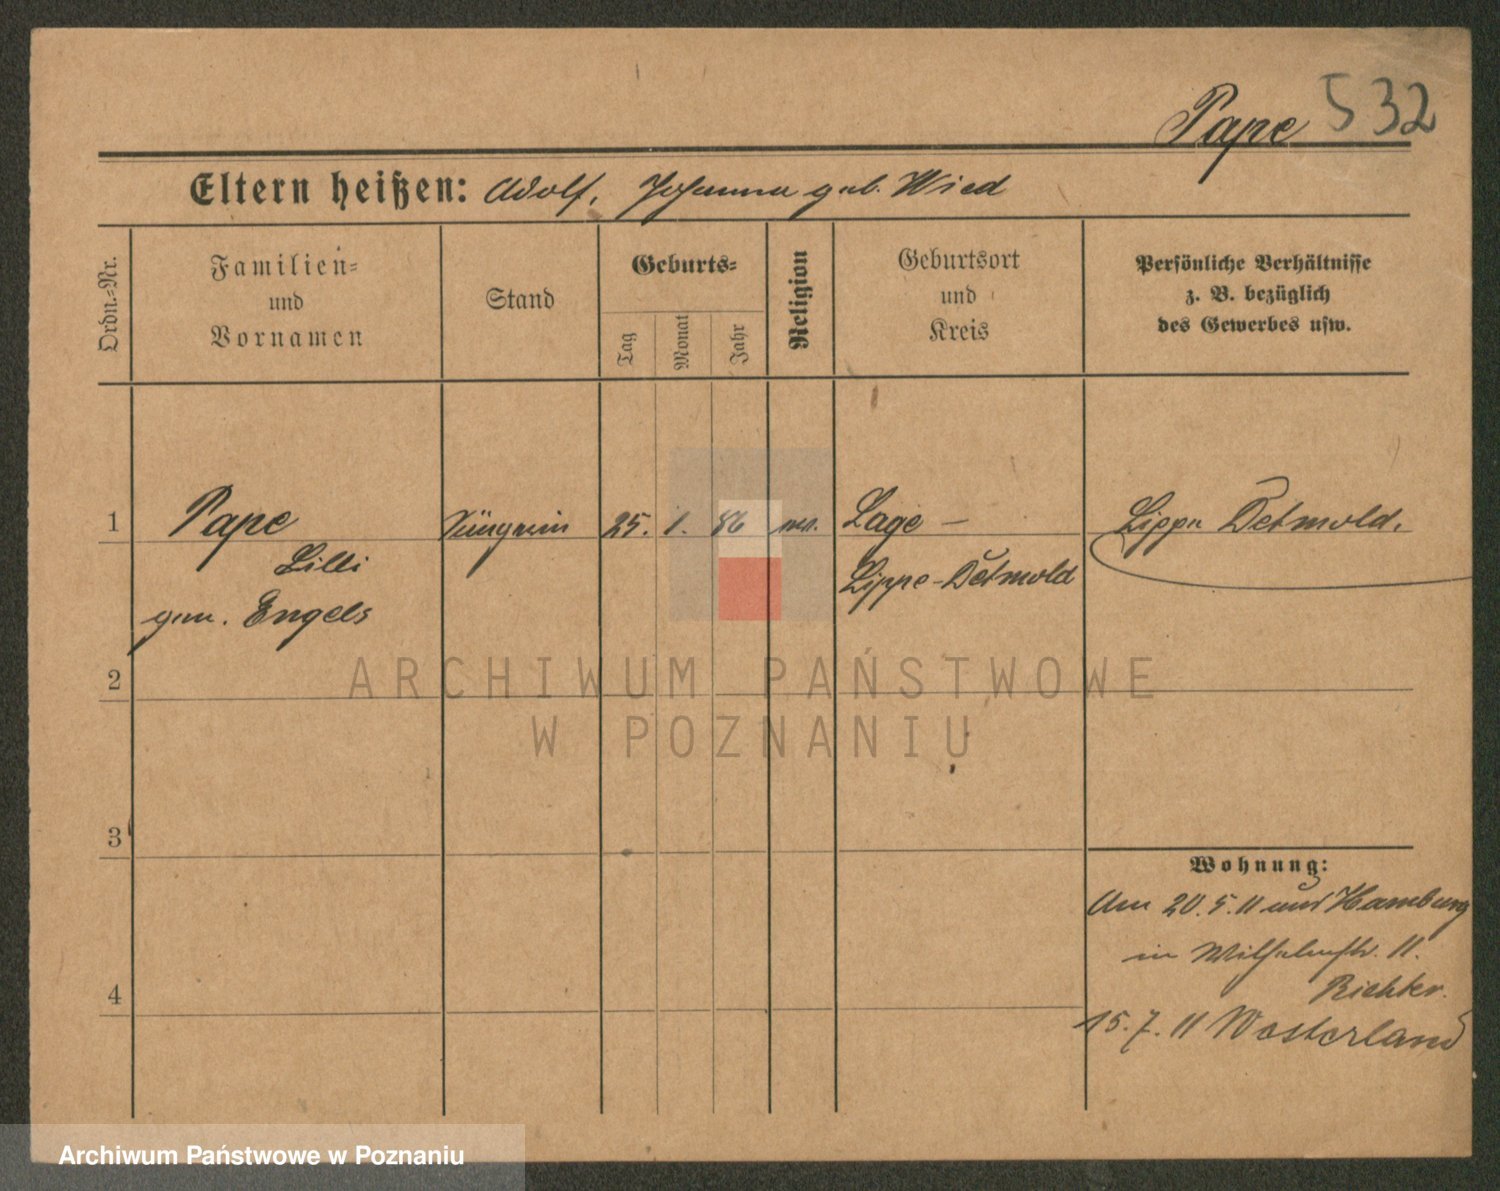 Pape 532
Eltern heißen: Adolf, Johanna geb. Wied
Ordn.-Nr.
Familien-
und
Vornamen
Stand
Geburts-
Tag
Monat
Jahr
Religion
Geburtsort
und
Kreis
Persönliche Verhältnisse
z. B. bezüglich
des Gewerbes usw.
1 Pape Sängerin 25. 1. 86 Lage – Lippe Detmold.
Lilli Lippe-Detmold
gen. Engels
2
3
4
Wohnung:
Am 20.5.11 aus Hamburg
in Wilhelmstr. 11.
Richter.
15.7.11 Westerland
ARCHIWUM PAŃSTWOWE
W POZNANIU
Archiwum Państwowe w Poznaniu